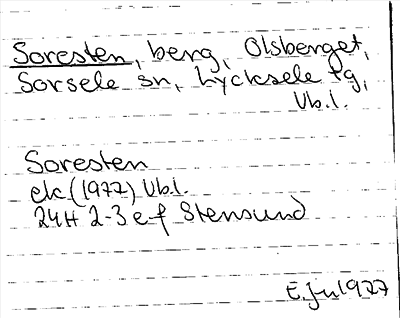 Soresten, berg, Olsberget,
Sorsele sn, Lycksele tg,
Vb.l.
Soresten
ek (1977) Vb.l.
24H 2-3 e-f Stensund
1977